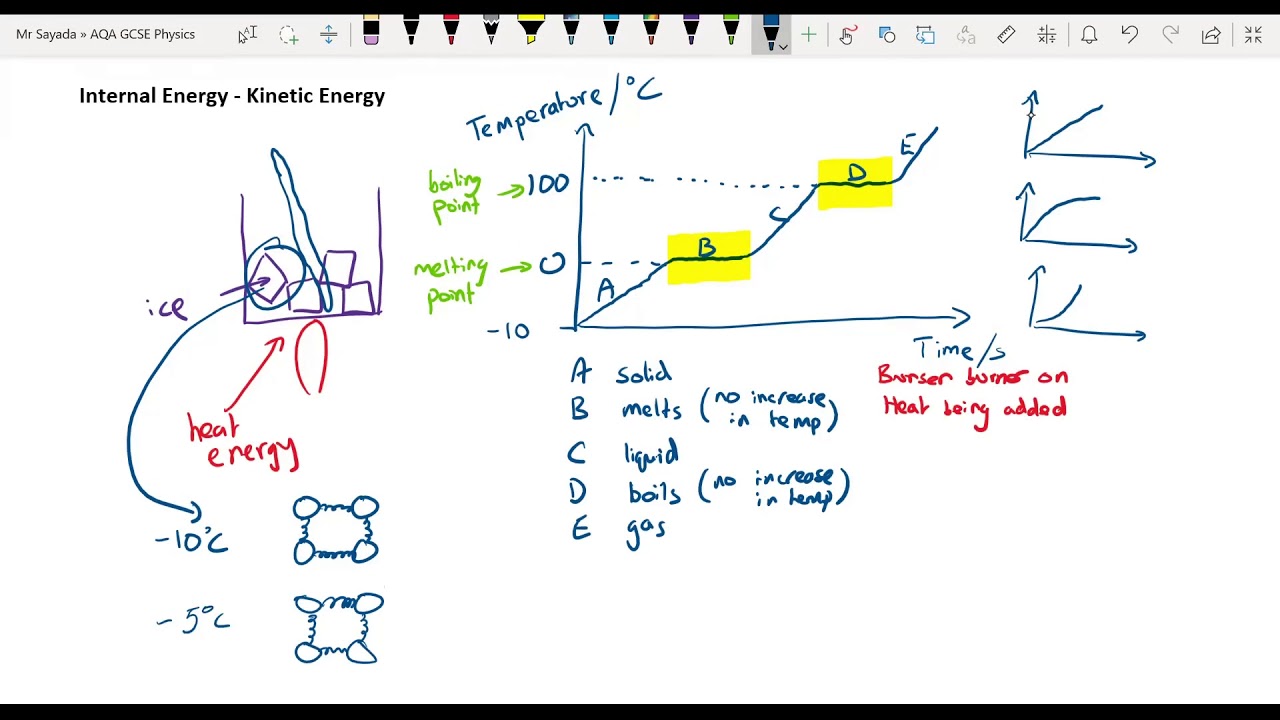 Mr Sayada » AQA GCSE Physics
Internal Energy - Kinetic Energy
Temperature/°C
boiling
point
100
melting
point
0
-10
A
B
C
D
E
Time/s
Bunsen burner on
Heat being added
ice
heat
energy
-10°C
-5°C
A solid
B melts (no increase
in temp)
C liquid
D boils (no increase
in temp)
E gas